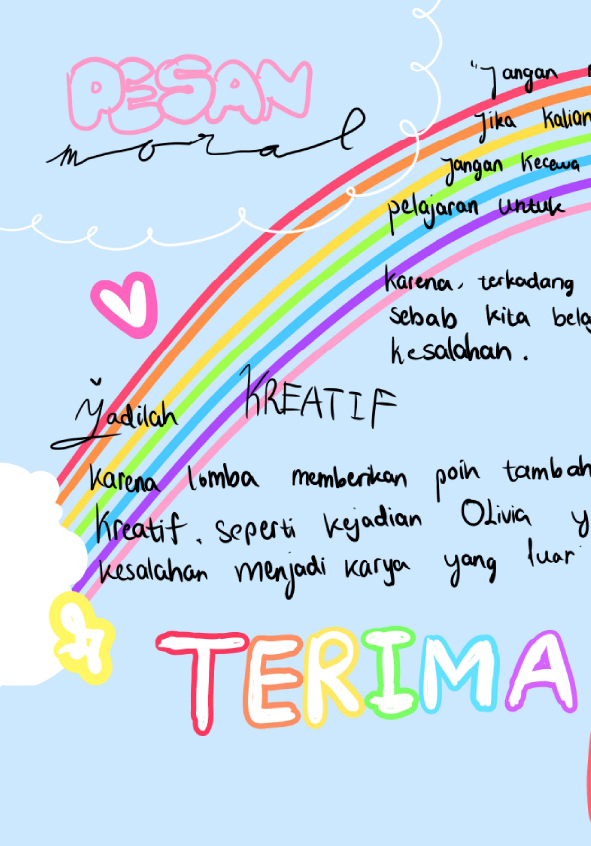 PESAN
moral
"Jangan
Jika kalian
jangan kecewa
pelajaran untuk
karena, terkadang
sebab kita
kesalahan.
Jadilah KREATIF
karena lomba memberikan poin
kreatif. seperti kejadian Olivia
kesalahan menjadi karya yang luar
TERIMA